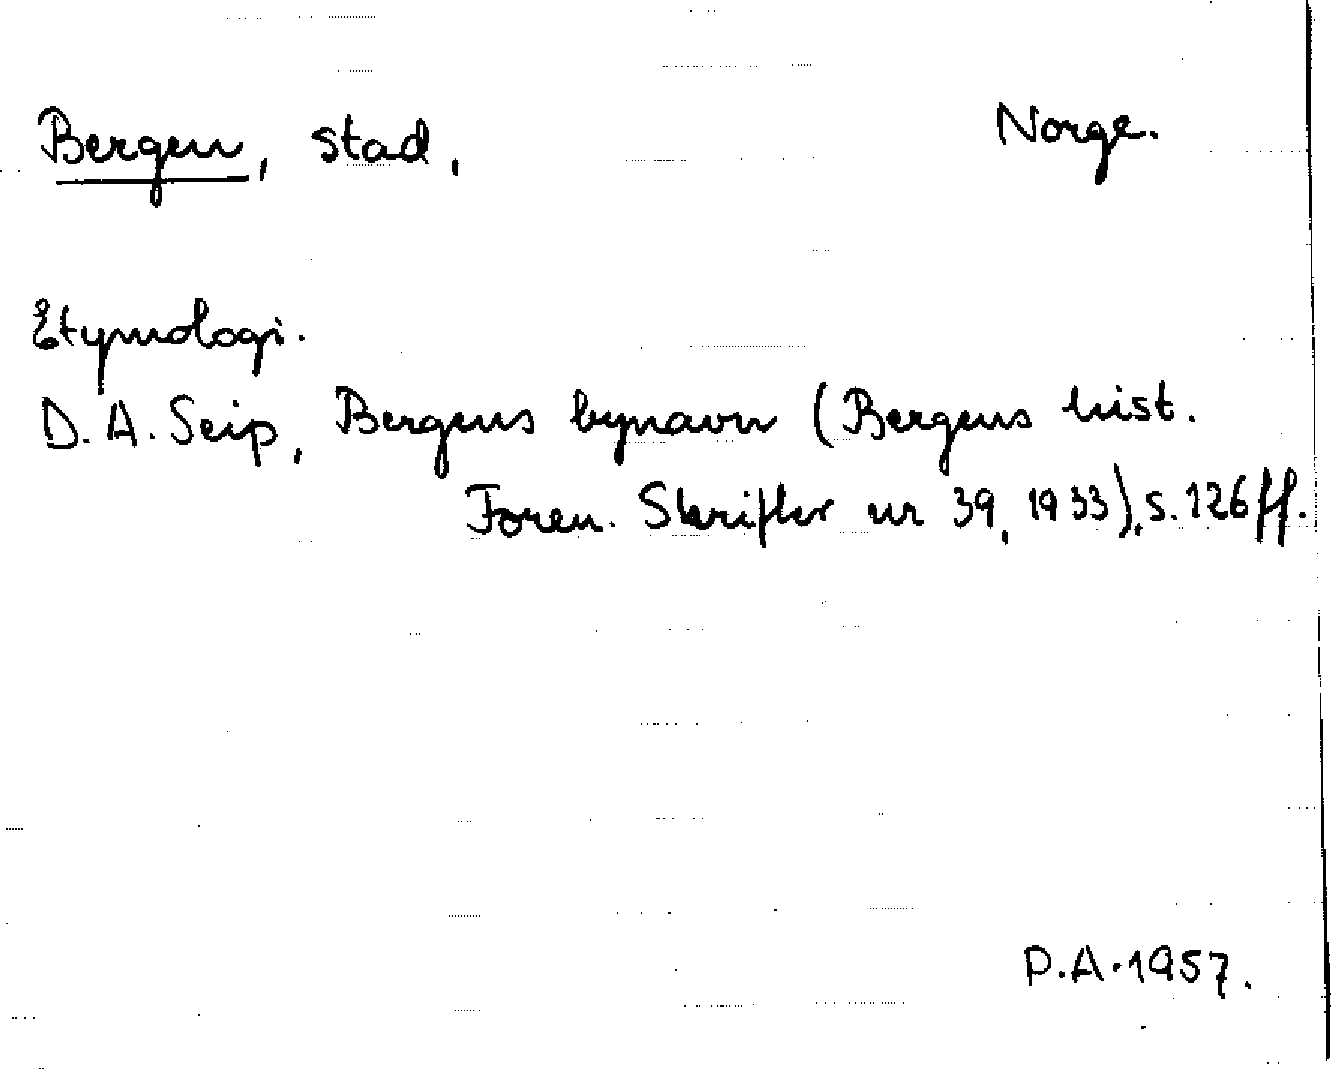 Bergen, stad, Norge.
Etymologi.
D. A. Seip, Bergens bynavn (Bergens hist.
Foren. Skrifter nr 39, 1933), s. 126 ff.
P.A. 1957.